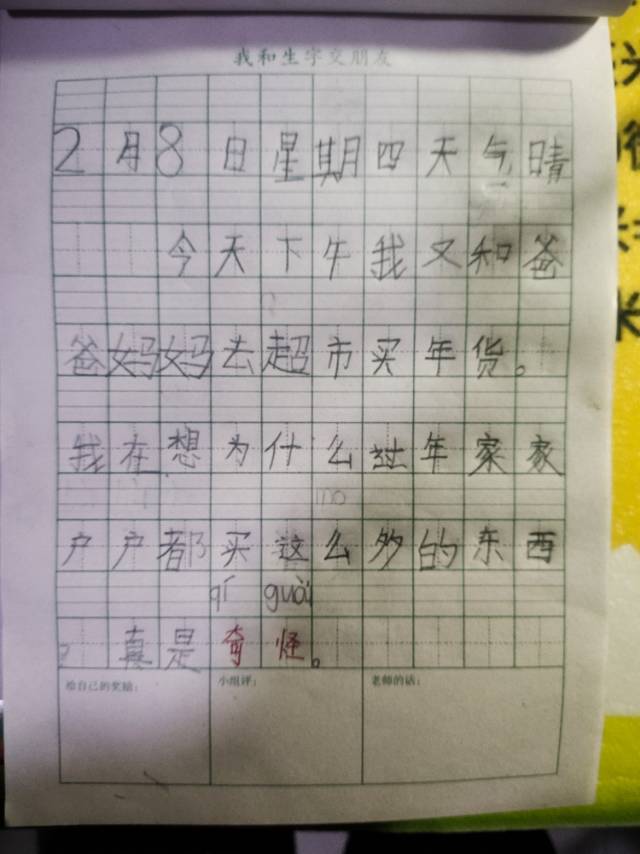 我和生字交朋友
2月8日星期四天气晴
今天下午我又和爸
爸妈妈去超市买年货。
我在想为什么过年家家
户户都买这么多的东西
qí guài
,真是奇怪。
给自己的奖励: 小组评: 老师的话: